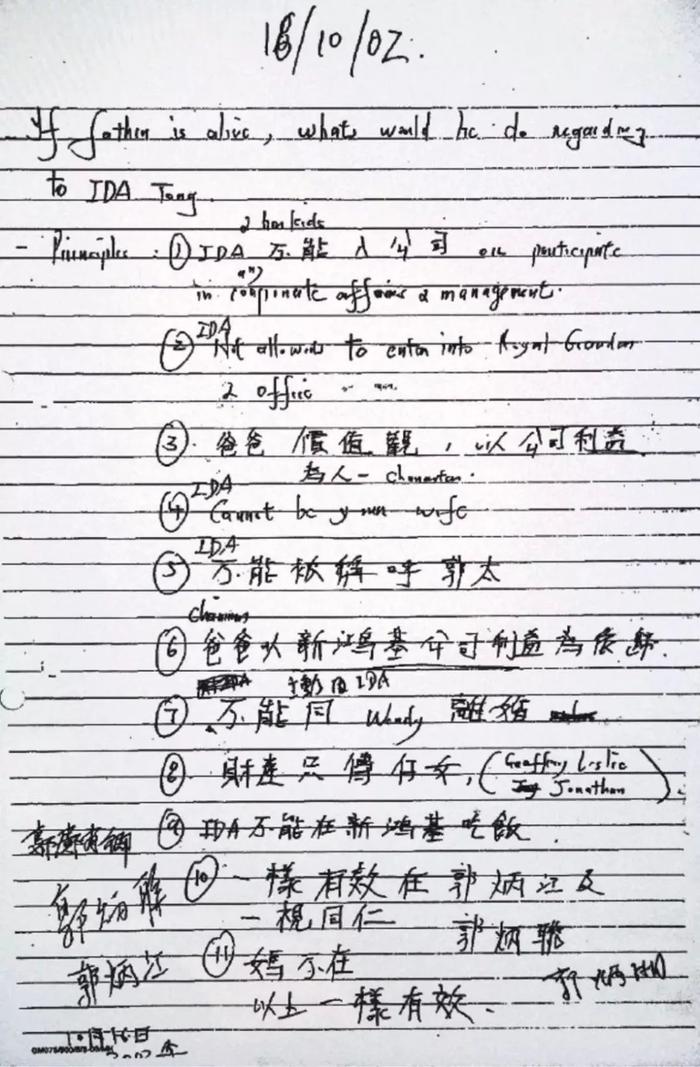 18/10/02.
If father is alive, what would he do regarding
to IDA Tong.
2 her kids
- Principles : ① IDA 不能入公司 or participate
any
in corporate affairs & management.
IDA
② Not allowed to enter into Royal Garden
& office
③ 爸爸價值觀，以公司利益
為人 - character.
IDA
④ Cannot be your wife
IDA
⑤ 不能被稱呼郭太
chairman
⑥ 爸爸以新鴻基公司利益為依歸.
主動及IDA
⑦ 不能同 Wendy 離婚
⑧ 財產只傳仔女, (Geoffrey Leslie
Jonathan)
⑨ IDA不能在新鴻基吃飯
⑩ 一樣有效在郭炳江及
一視同仁 郭炳聯
郭炳江
⑪ 媽不在
以上一樣有效.
10月16日
2002年